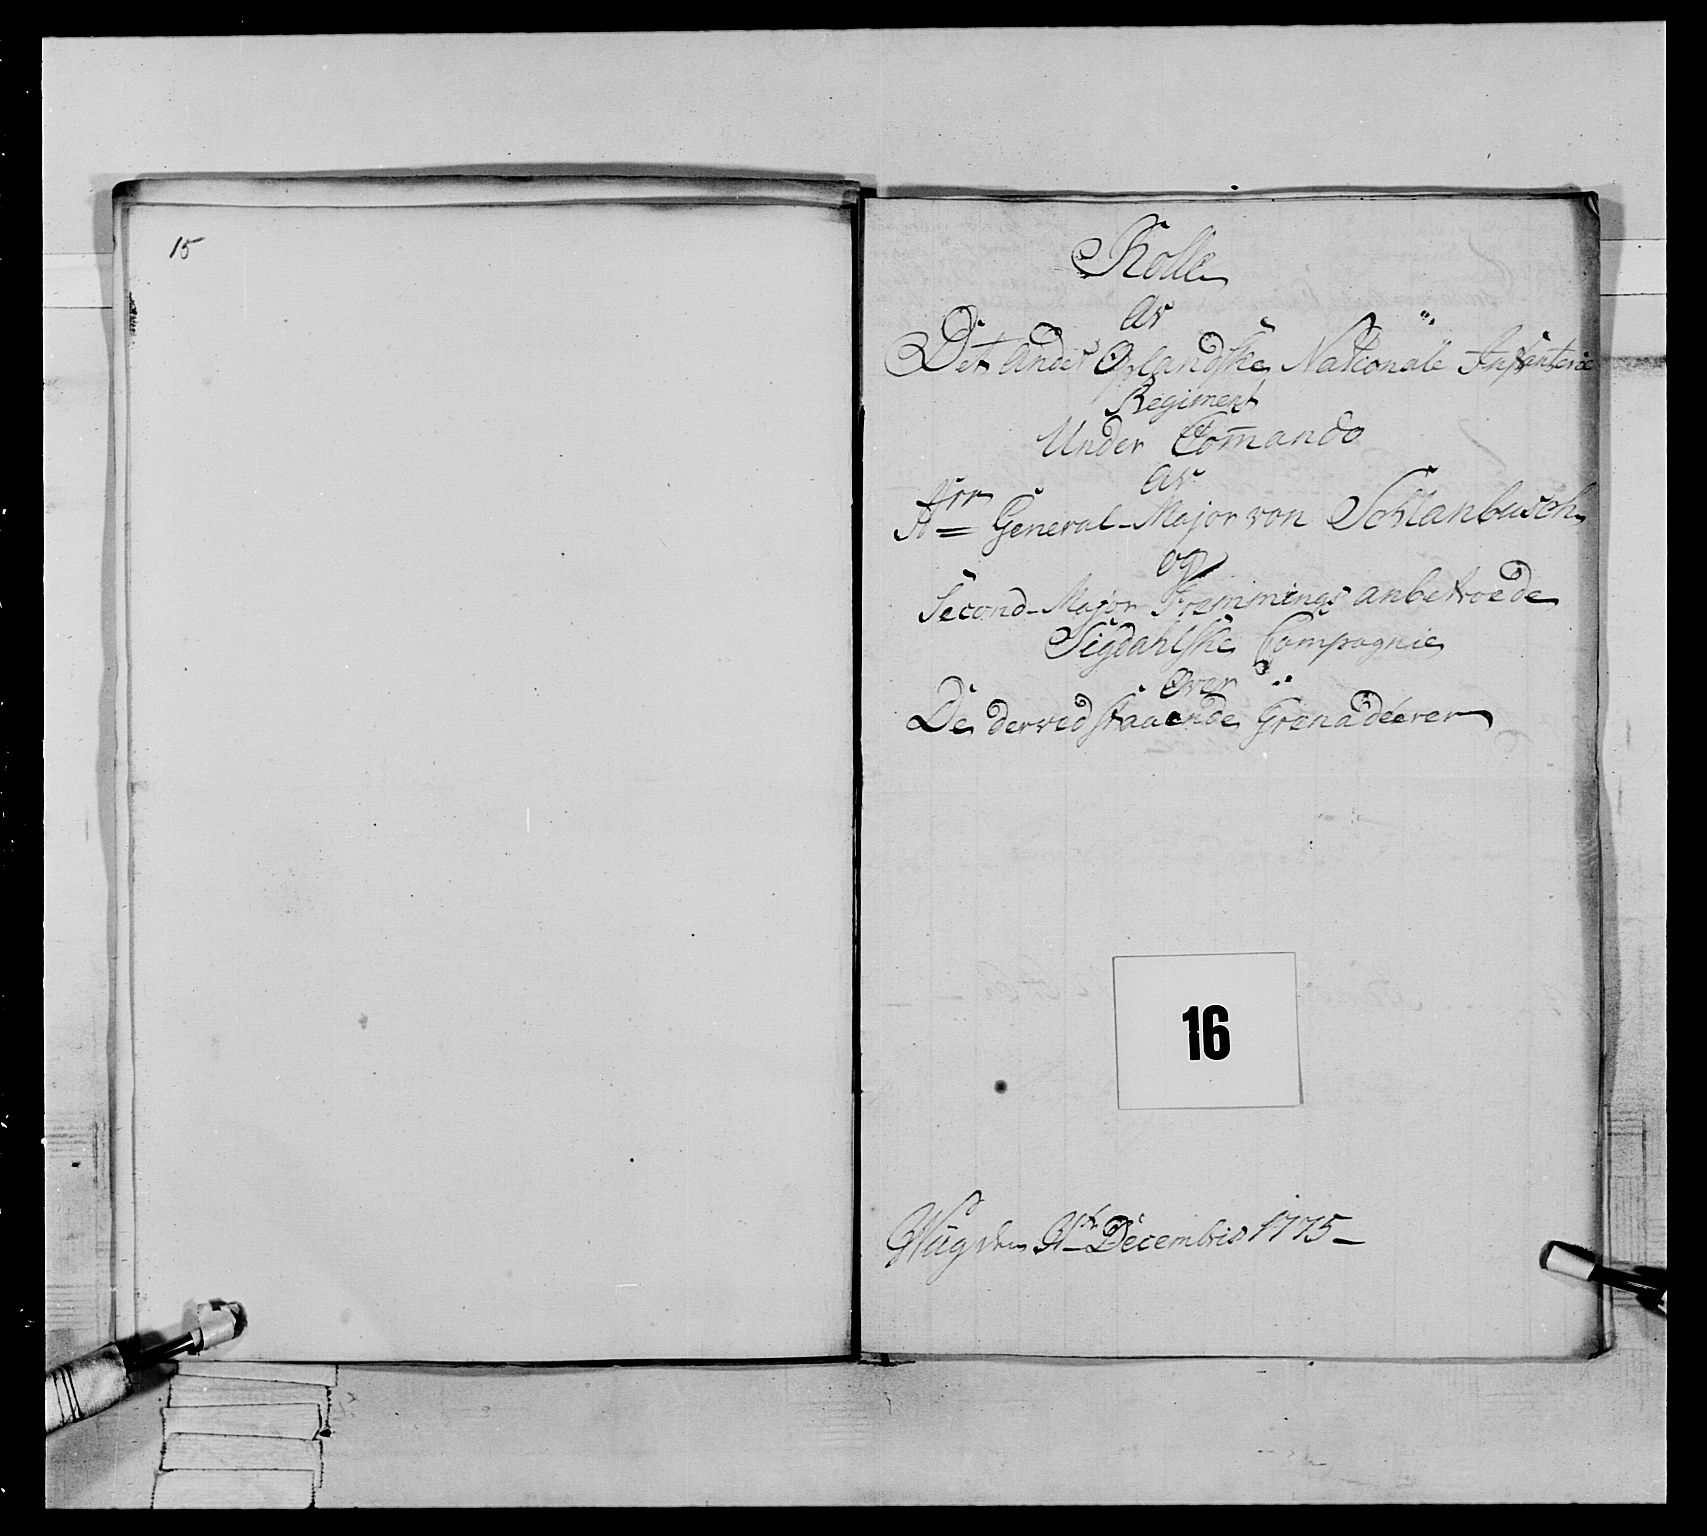 15
Rolle
av
Det Andet Oplandske Nationale Infanterie
Regiment
Under Com̄ando
av
Hrr General-Major von Schlanbusch
og
Second-Major Fremmings anbetroede
Sigdahlske Compagnie
over
De derved staaende Grenadéerer
16
den 31te Decembris 1775